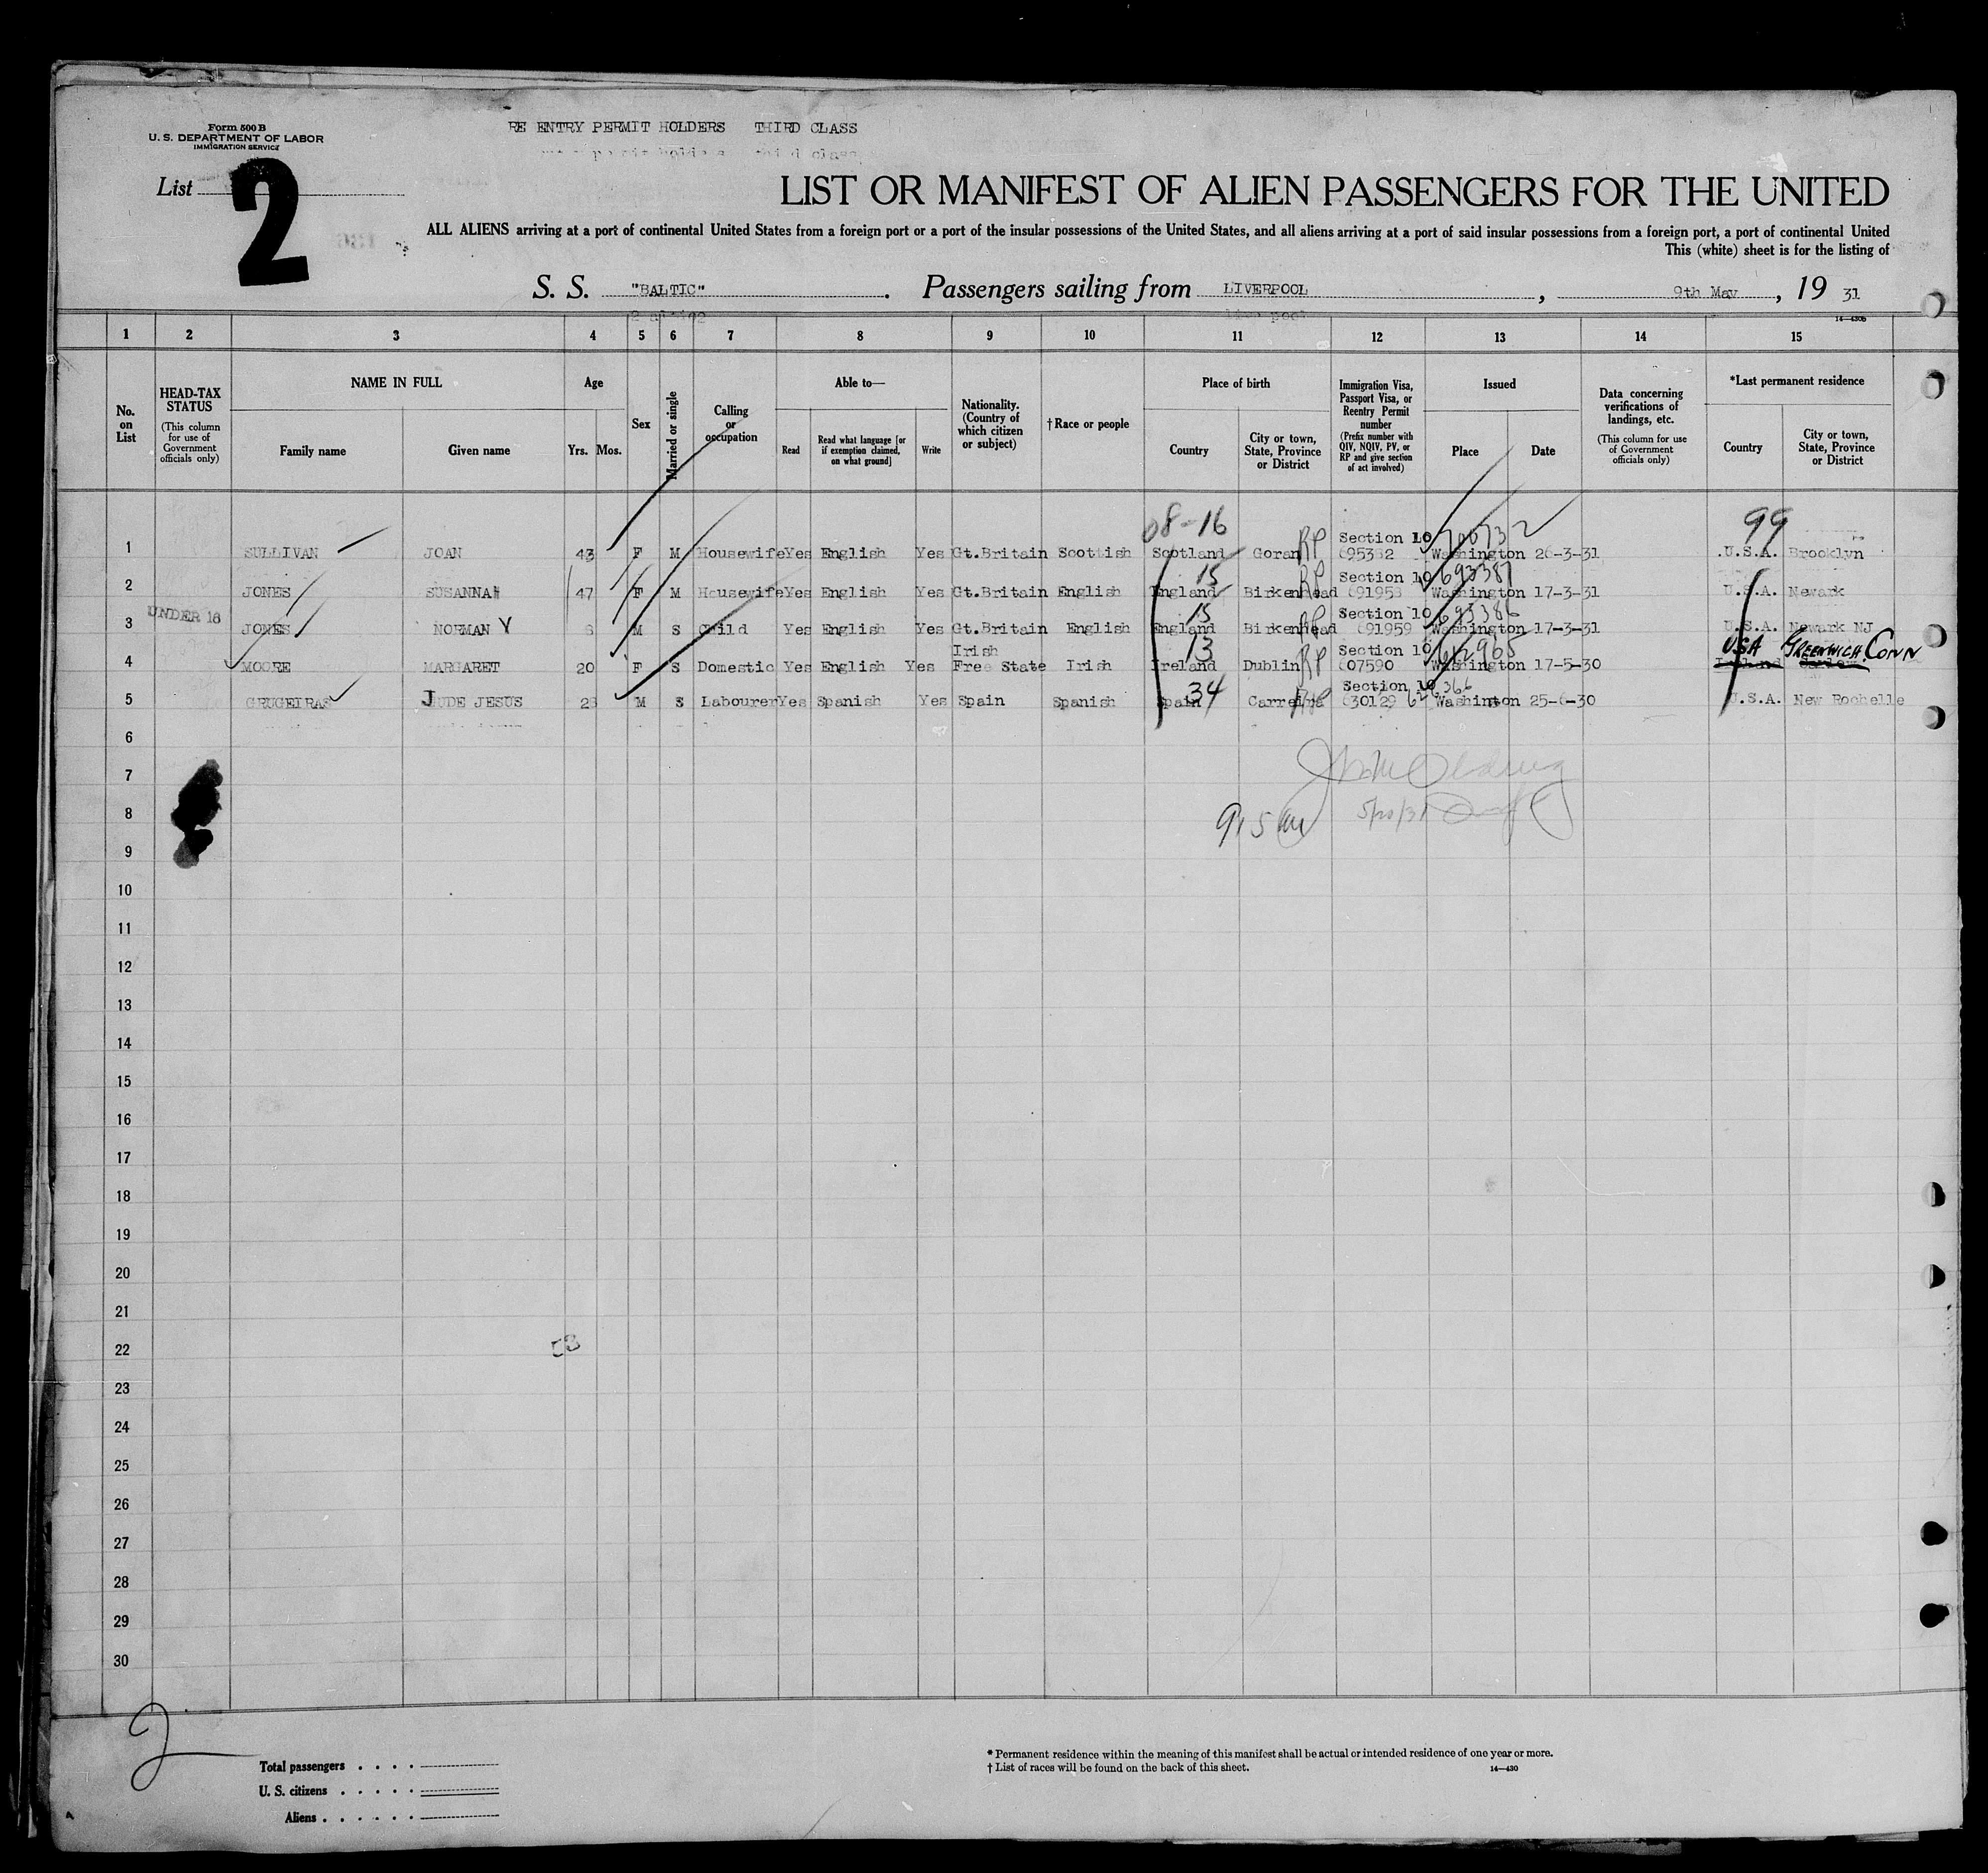 Form 500 B
U. S. DEPARTMENT OF LABOR
IMMIGRATION SERVICE
RE ENTRY PERMIT HOLDERS THIRD CLASS
List 2
LIST OR MANIFEST OF ALIEN PASSENGERS FOR THE UNITED
ALL ALIENS arriving at a port of continental United States from a foreign port or a port of the insular possessions of the United States, and all aliens arriving at a port of said insular possessions from a foreign port, a port of continental United
This (white) sheet is for the listing of
S. S. "BALTIC". Passengers sailing from LIVERPOOL, 9th May, 19 31
14—430b
1 2 3 4 5 6 7 8 9 10 11 12 13 14 15
No. on List
HEAD-TAX STATUS
(This column for use of Government officials only)
NAME IN FULL
Family name
Given name
Age
Yrs. Mos.
Sex
Married or single
Calling or occupation
Able to—
Read
Read what language [or if exemption claimed, on what ground]
Write
Nationality. (Country of which citizen or subject)
†Race or people
Place of birth
Country
City or town, State, Province or District
Immigration Visa, Passport Visa, or Reentry Permit number
(Prefix number with QIV, NQIV, PV, or RP and give section of act involved)
Issued
Place
Date
Data concerning verifications of landings, etc.
(This column for use of Government officials only)
*Last permanent residence
Country
City or town, State, Province or District
08-16 99
Section 10 700732
1 SULLIVAN JOAN 43 F M Housewife Yes English Yes Gt.Britain Scottish Scotland Goran RP 695382 Washington 26-3-31 U.S.A. Brooklyn
15 Section 10 693387
2 JONES SUSANNAH 47 F M Housewife Yes English Yes Gt.Britain English England Birkenhead RP 691958 Washington 17-3-31 U.S.A. Newark
UNDER 16
15 Section 10 693386
3 JONES NORMAN V M S Child Yes English Yes Gt.Britain English England Birkenhead RP 691959 Washington 17-3-31 U.S.A. Newark NJ
Irish 13 Section 10 612965 USA GREENWICH. CONN
4 MOORE MARGARET 20 F S Domestic Yes English Yes Free State Irish Ireland Dublin RP 607590 Washington 17-5-30
34 Section 10
5 GRUGEIRAS JUDE JESUS 28 M S Labourer Yes Spanish Yes Spain Spanish Spain RP 630129 Washinton 25-6-30 U.S.A. New Rochelle
6
7
8
5/20/31
9
10
11
12
13
14
15
16
17
18
19
20
21
22
23
24
25
26
27
28
29
30
2
Total passengers
U. S. citizens
Aliens
* Permanent residence within the meaning of this manifest shall be actual or intended residence of one year or more.
† List of races will be found on the back of this sheet.
14—430